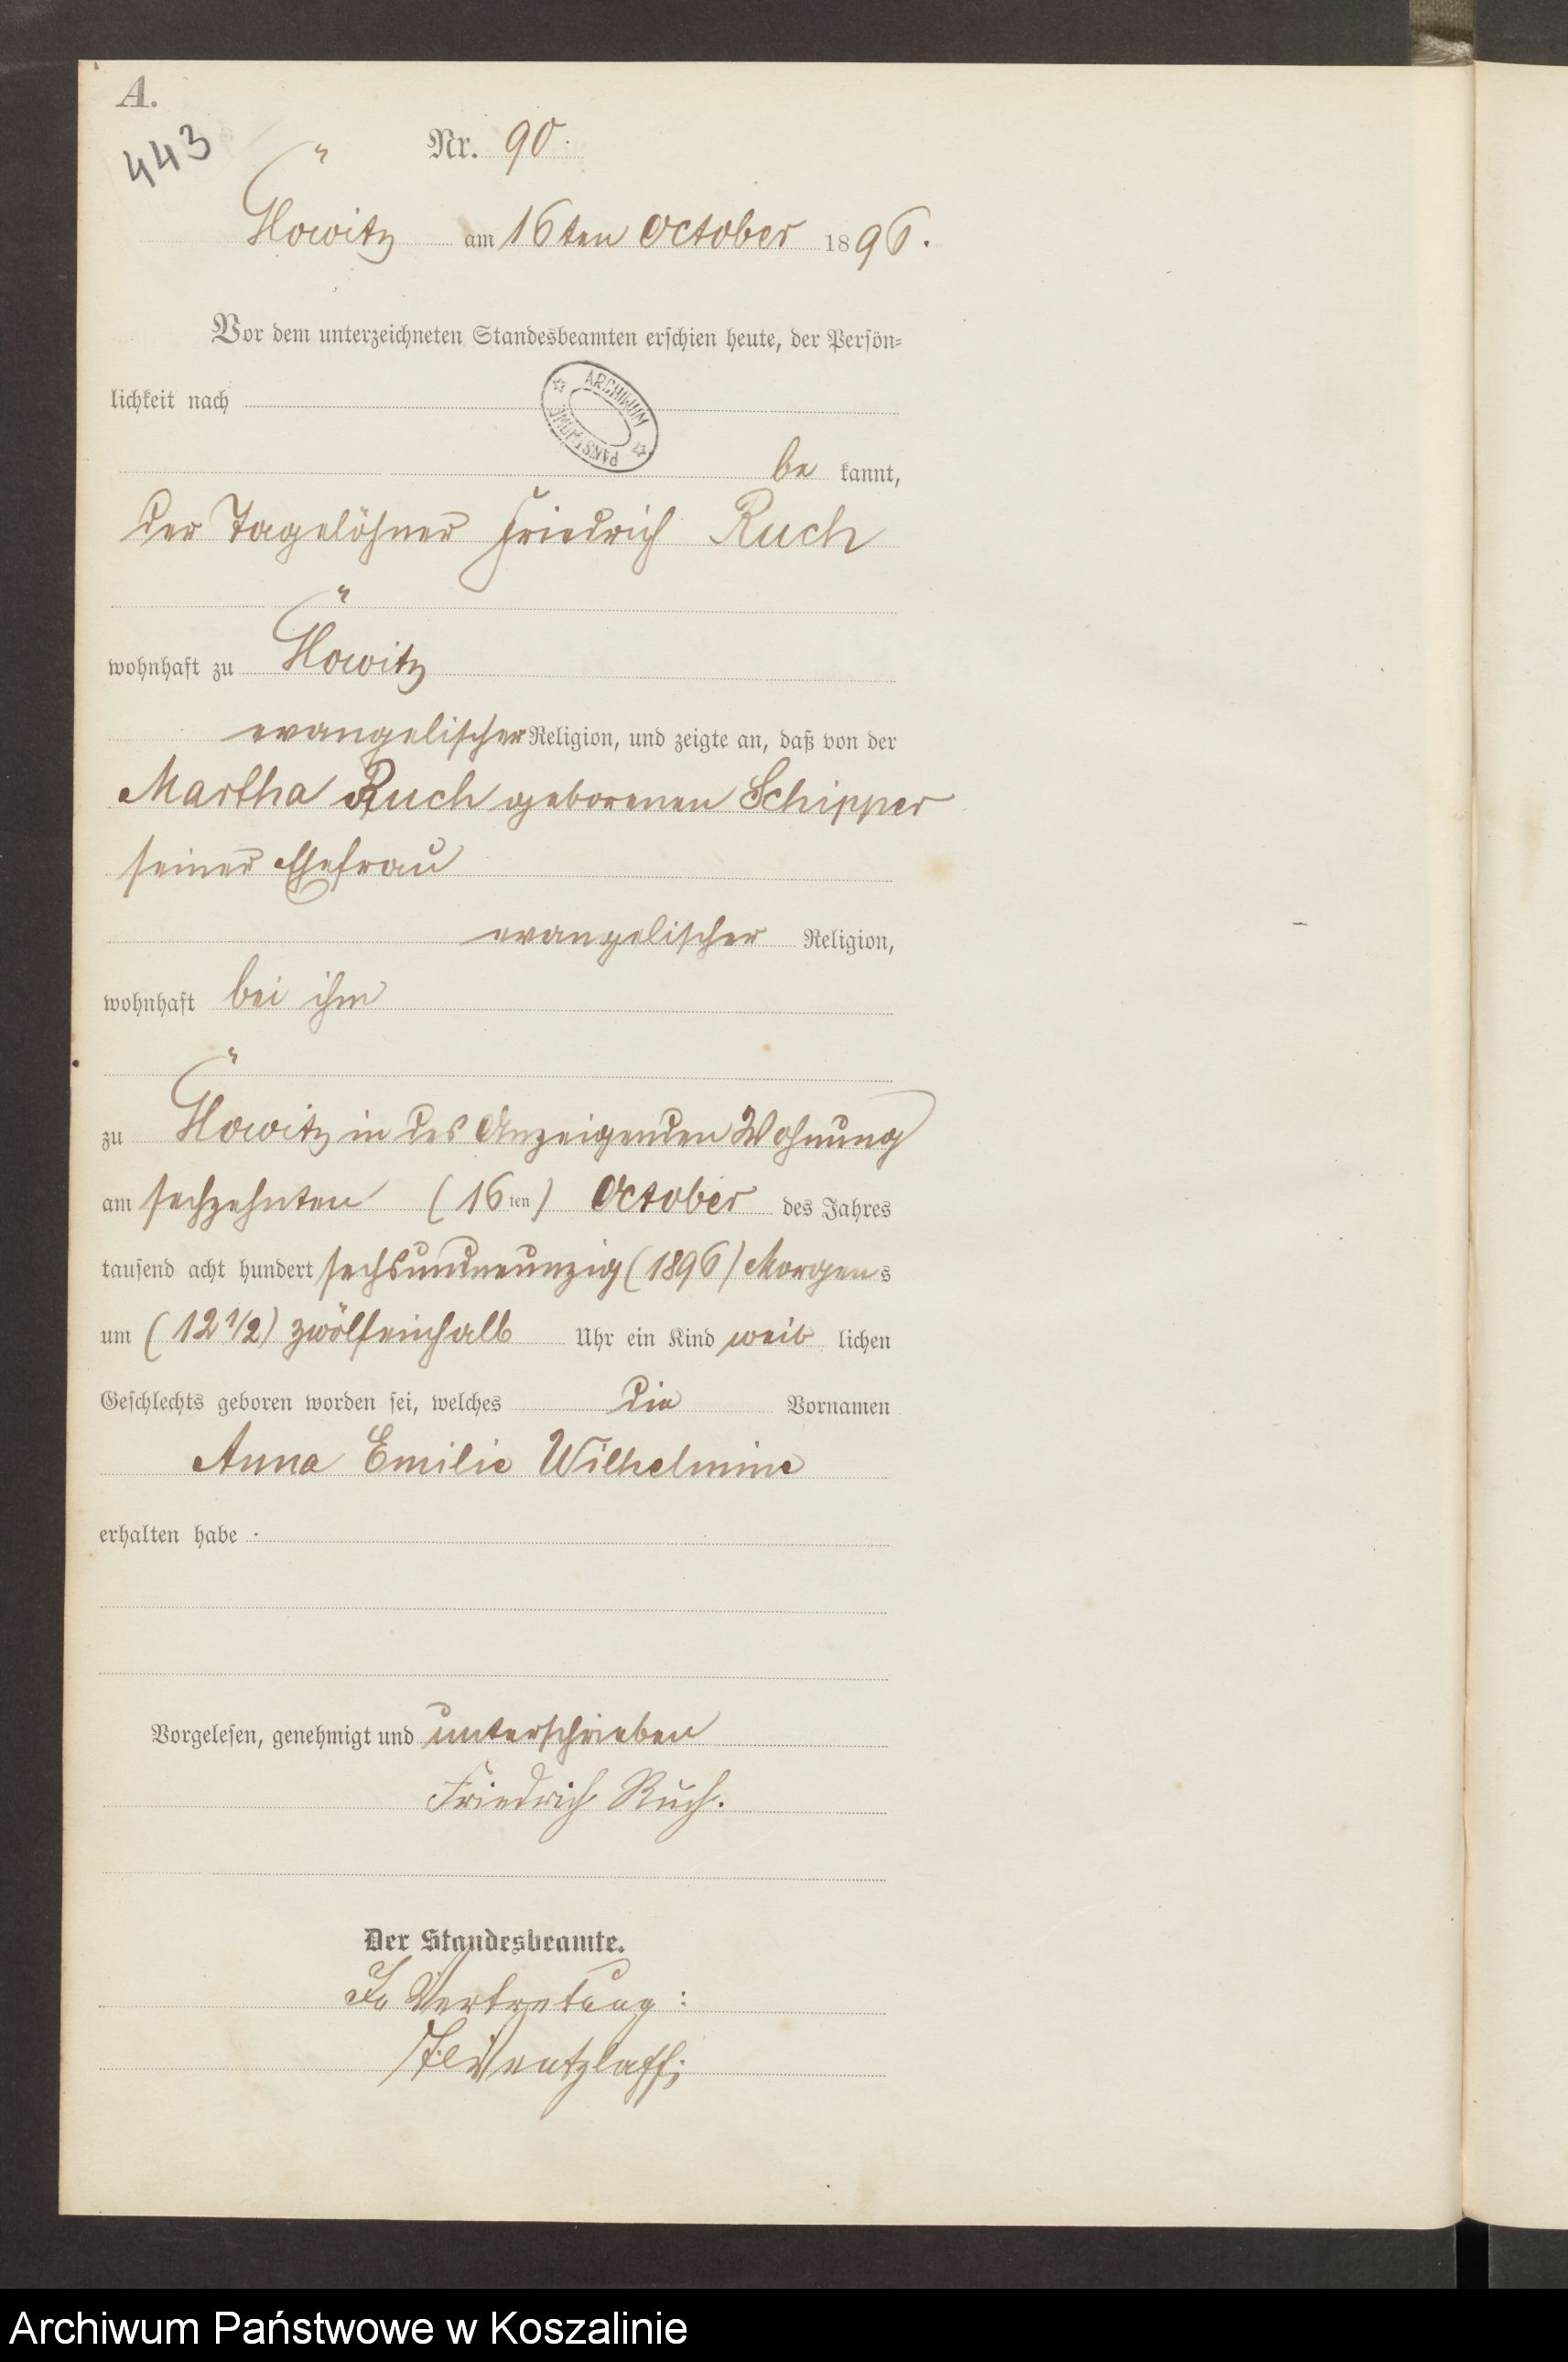 A.
443
Nr. 90.
Höwitz am 16ten October 1896.
Vor dem unterzeichneten Standesbeamten erschien heute, der Persön-
lichkeit nach
ARCHIWUM PAŃSTWOWE
be kannt,
der Tagelöhner Friedrich Ruch
wohnhaft zu Höwitz
evangelischer Religion, und zeigte an, daß von der
Martha Ruch geborenen Schipper
seiner Ehefrau
evangelischer Religion,
wohnhaft bei ihm
zu Höwitz in des Anzeigenden Wohnung
am sechzehnten (16ten) October des Jahres
tausend acht hundert sechsundneunzig (1896) Morgens
um (12 1/2) zwölfeinhalb Uhr ein Kind weib lichen
Geschlechts geboren worden sei, welches die Vornamen
Anna Emilie Wilhelmine
erhalten habe.
Vorgelesen, genehmigt und unterschrieben
Friedrich Ruch.
Der Standesbeamte.
In Vertretung:
Archiwum Państwowe w Koszalinie